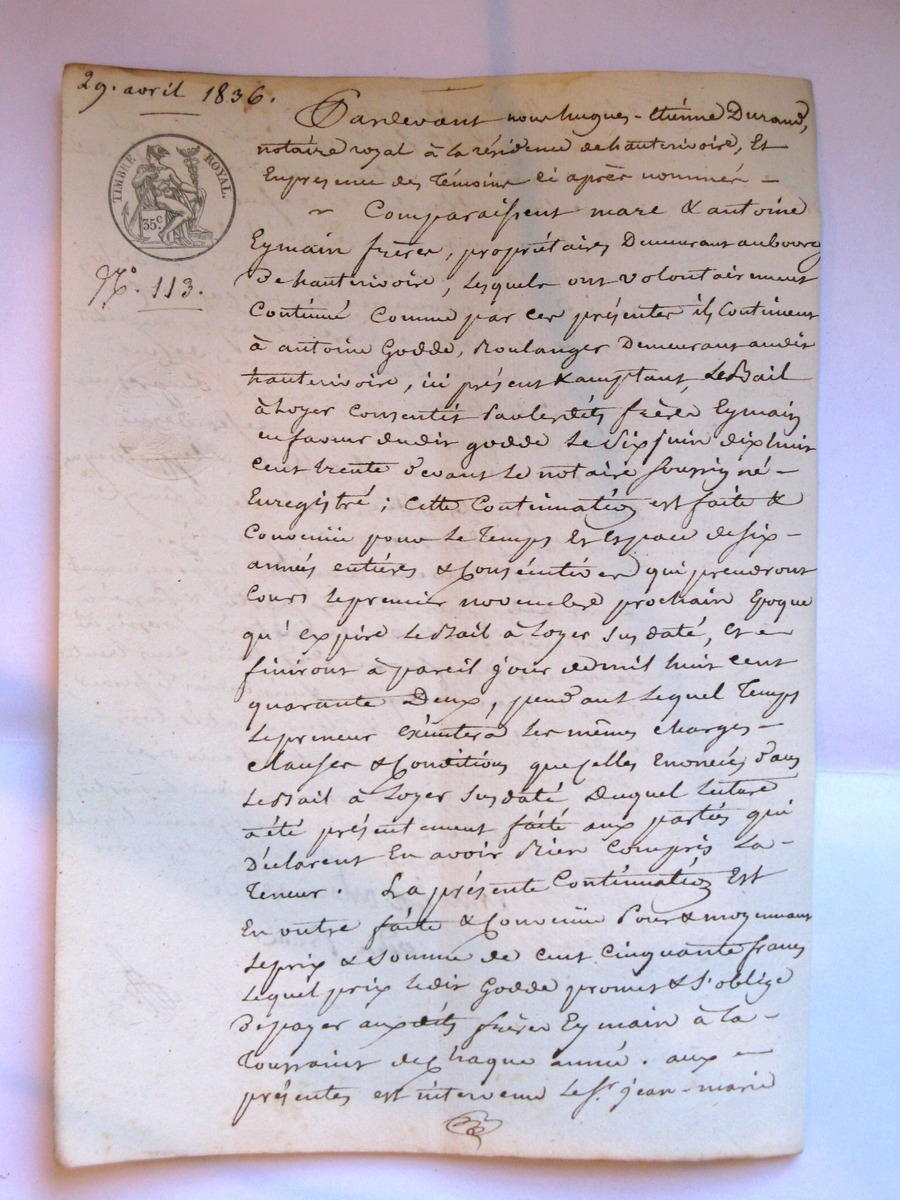 29. avril 1836.
TIMBRE ROYAL.
35c.
N°. 113.
Pardevant nous hugues-étienne Durand,
notaire royal à la résidence de hauterivoire, Et
En presence des Témoins ci après nommés —
Comparaissent marc & antoine
Eymain frères, propriétaires Demeurant au bourg
De hauterivoire, Lesquels ont volontairement
Continué Comme par ces présentes ils Continuent
à antoine Godde, Boulanger Demeurant audit
hauterivoire, ici présent & acceptant, Le Bail
à Loyer Consentit Par lesdits frères Eymain
en faveur dudit godde Le Six juin dix huit
cent trente Devant Le notaire soussigné —
Enregistré ; cette Continuation est faite &
Convenüe pour Le Temps Et Espace de six —
années entières & Consécutives qui prendront
Cours Le premier novembre prochain Epoque
qu'expire Le Bail à Loyer Susdaté, Et —
finiront à pareil jour de mil huit cent
quarante Deux, pendant Lequel Temps
Le preneur exécutera Les mêmes charges —
clauses & Conditions que celles Enoncées Dans
Le Bail à Loyer Susdaté Duquel Lecture
a été présentement faite aux parties qui
Déclarent En avoir Bien Compris La —
Teneur. La présente Continuation Est
En outre faite & Convenüe Pour & moyennant
Le prix & Somme de cent cinquante francs
Lequel prix Ledit Godde promet & S'oblige
De payer auxdits frères Eymain à La —
Toussaint de chaque année. aux —
présentes est intervenu Le Sr. jean-marie